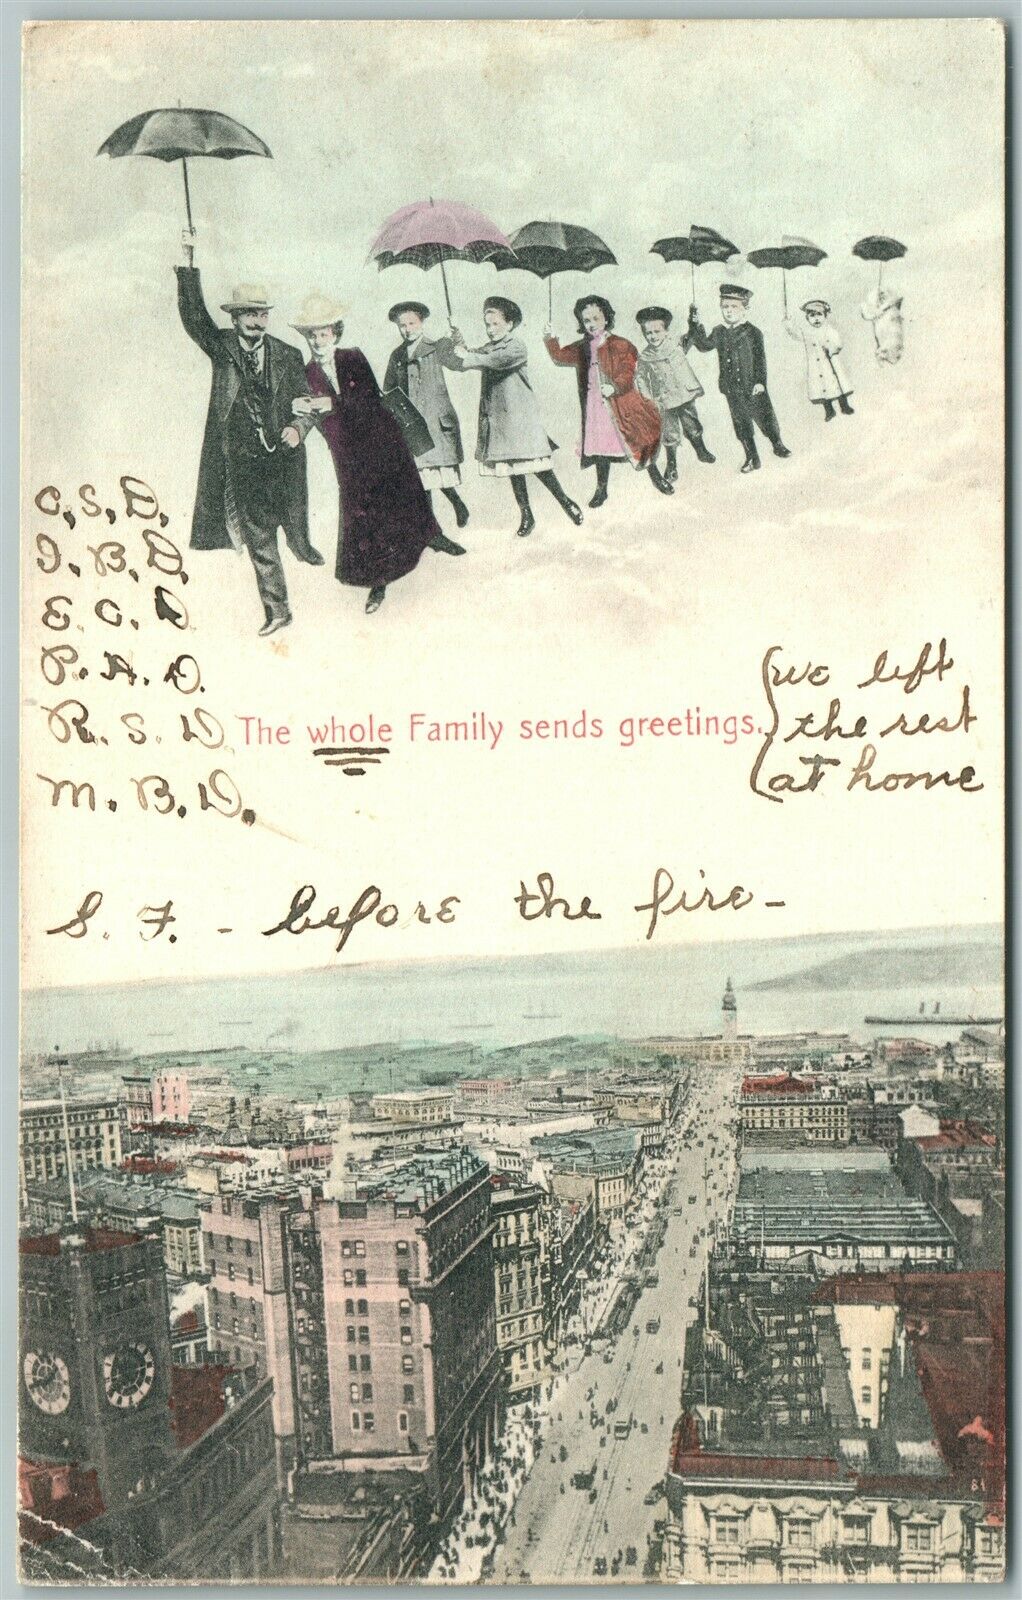 C. S. D.
I. B. D.
E. C. D.
P. A. D.
R. S. D.
M. B. D.
The whole Family sends greetings.
we left
the rest
at home
S. F. - before the fire -
81